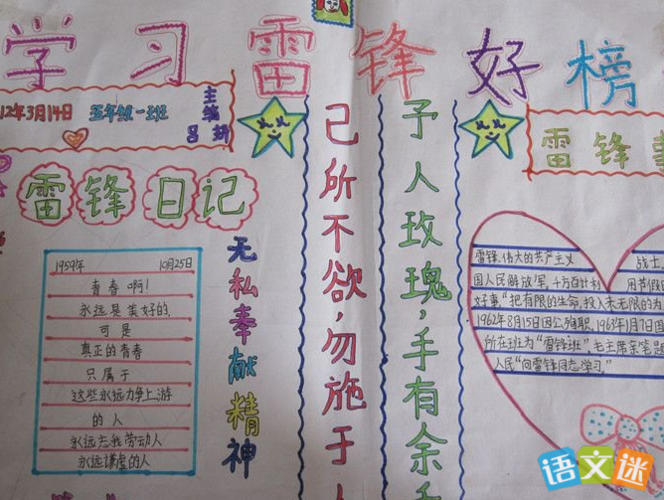 学习雷锋好榜
12年3月14日 五年级一班
主编
吕妍
雷锋日记
1959年 10月25日
青春啊!
永远是美好的,
可是
真正的青春
只属于
这些永远力争上游
的人
永远忘我劳动人
永远谦虚的人
无私奉献精神
己所不欲,勿施于人
予人玫瑰,手有余
雷锋
雷锋,伟大的共产主义 战士
国人民解放军,千方百计 用节假
好事,“把有限的生命,投入未无限的为
1962年8月15日因公殉职,1963年1月7日国
所在班为“雷锋班”,毛主席亲笔题
人民“向雷锋同志学习”
语文迷